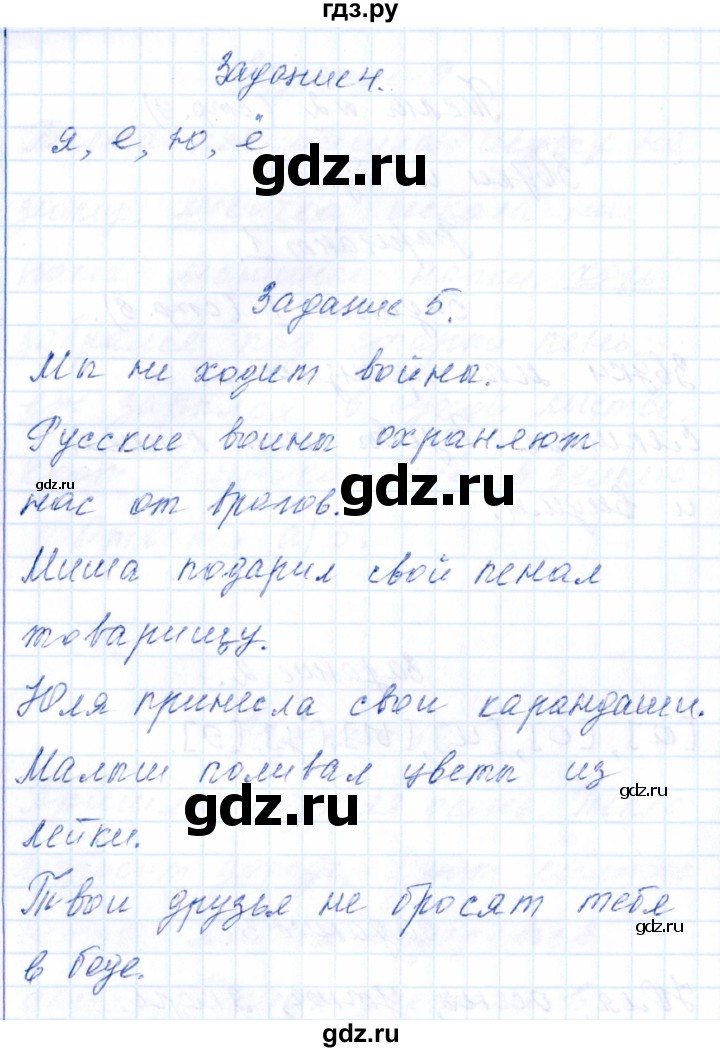 гдз.ру
Задание 4.
я, е, ю, ё
gdz.ru
Задание 5.
Мы не ходит войны.
Русские воины охраняют
gdz.ru
нас от врагов.
gdz.ru
Миша подарил свой пенал
товарищу.
Юля принесла свои карандаши.
Малыш поливал цветы из
gdz.ru
gdz.ru
лейки.
Твои друзья не бросят тебя
gdz.ru
в беде.
gdz.ru